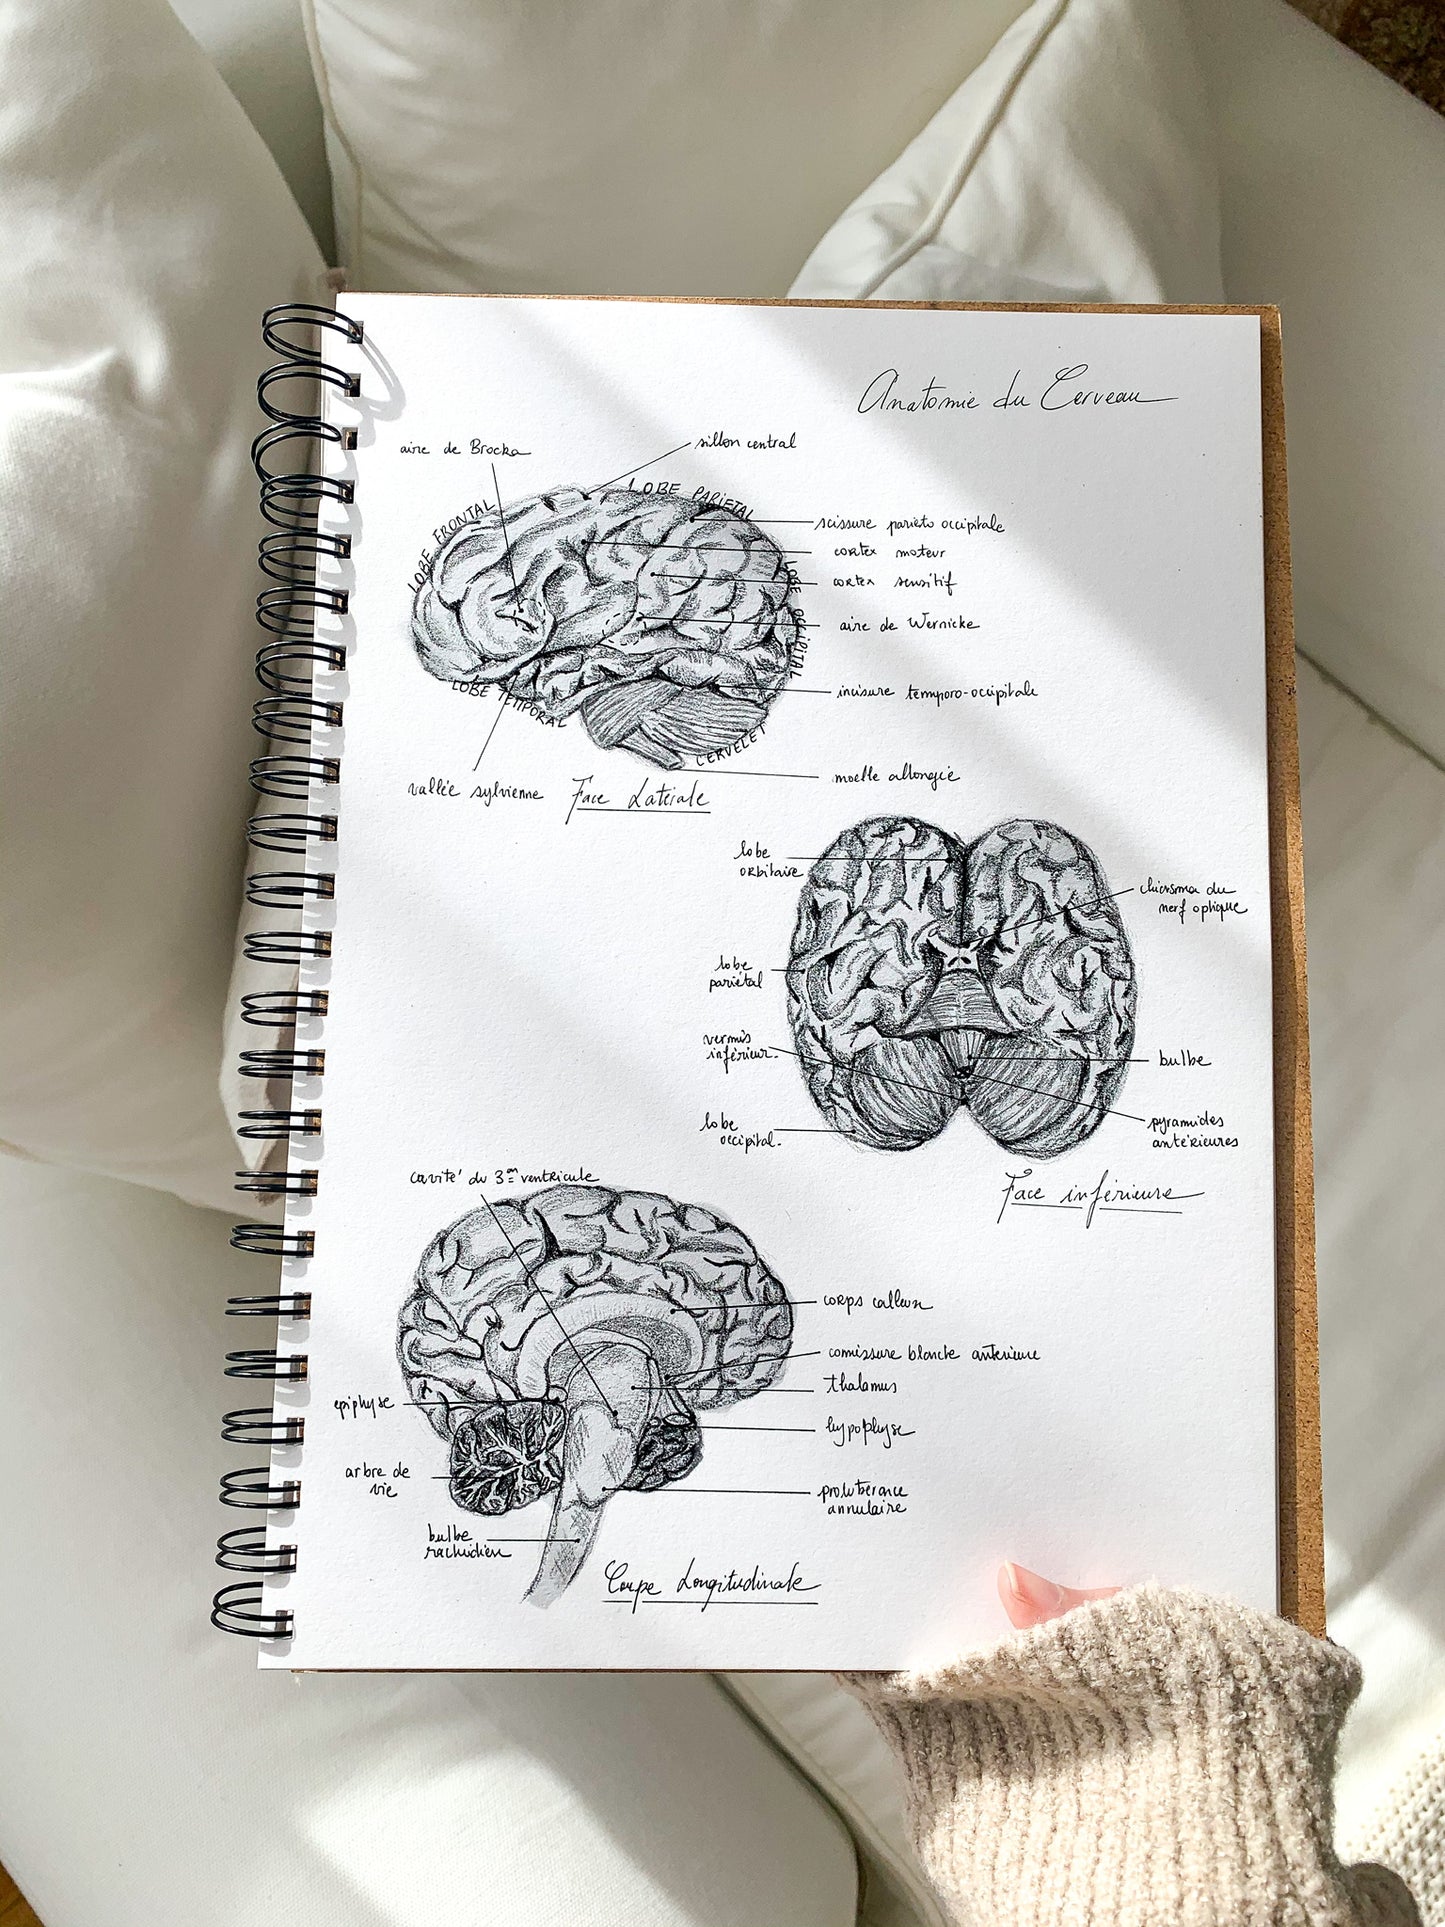 Anatomie du Cerveau
aire de Brocka
sillon central
LOBE FRONTAL
LOBE PARIETAL
scissure pariéto occipitale
cortex moteur
cortex sensitif
LOBE OCCIPITAL
aire de Wernicke
incisure temporo-occipitale
LOBE TEMPORAL
CERVELET
moelle allongée
vallée sylvienne
Face Latérale
lobe
orbitaire
chiasma du
nerf optique
lobe
pariétal
vermis
inférieur.
bulbe
lobe
occipital.
pyramides
antérieures
Face inférieure
cavité du 3em ventricule
corps calleux
comissure blanche antérieure
thalamus
epiphyse
hypophyse
arbre de
vie
protubérance
annulaire
bulbe
rachidien
Coupe Longitudinale